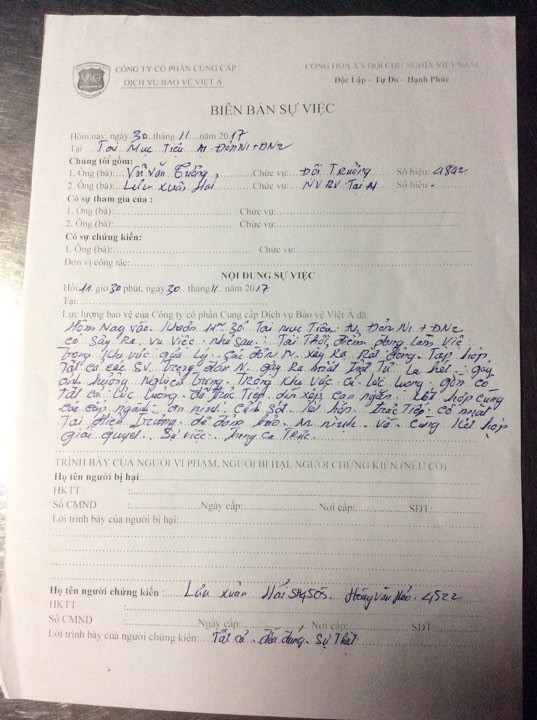 VAG
CÔNG TY CỔ PHẦN CUNG CẤP
DỊCH VỤ BẢO VỆ VIỆT Á
CỘNG HÒA XÃ HỘI CHỦ NGHĨA VIỆT NAM
Độc Lập – Tự Do – Hạnh Phúc
BIÊN BẢN SỰ VIỆC
Hôm nay, ngày 30 tháng 11 năm 2017
Tại: Tại Mục Tiêu ĐơnN1+ĐN2
Chúng tôi gồm:
1. Ông (bà): Vũ Văn Chức vụ: Đội Trưởng Số hiệu: 4842
2. Ông (bà): Lưu Xuân Hải Chức vụ: NVBV Tại Số hiệu:
Có sự tham gia của :
1. Ông (bà): Chức vụ:
2. Ông (bà): Chức vụ:
Có sự chứng kiến:
1. Ông (bà): Chức vụ:
Đơn vị công tác:
NỘI DUNG SỰ VIỆC
Hồi 11 giờ 30 phút, ngày 30 tháng 11 năm 2017
Tại:
Lực lượng bảo vệ của Công ty cổ phần Cung cấp Dịch vụ Bảo vệ Việt Á đã:
Hôm Nay vào 30 Tại mục Tiêu ĐơnN1 + ĐN2
có Sảy Ra vụ Việc như sau. Tại Thời điểm đang làm Việc
Trong Khu vực quản Lý xảy Ra Rất đông Tập hợp
Tất cả các SV Trong đơn N gây Ra mất Trật Tự La hét gây
ảnh hưởng Trong Khu vực Lực Lượng
Tất cả Lực Lượng để Trực Tiếp can ngăn Kết hợp cùng
các cấp ngành an ninh Cảnh Sát Trực Tiếp có mặt
Tại Hiện Trường để đảm bảo ninh và cùng Kết hợp
giải quyết Sự việc Trong ca Trực.
TRÌNH BÀY CỦA NGƯỜI VI PHẠM, NGƯỜI BỊ HẠI, NGƯỜI CHỨNG KIẾN (NẾU CÓ)
Họ tên người bị hại:
HKTT
Số CMND Ngày cấp: Nơi cấp: SĐT:
Lời trình bày của người bị hại:
Họ tên người chứng kiến : Lưu Xuân Hải Hoàng Văn 4522
HKTT
Số CMND Ngày cấp: Nơi cấp: SĐT:
Lời trình bày của người chứng kiến: Tất cả đều đúng Sự Thật